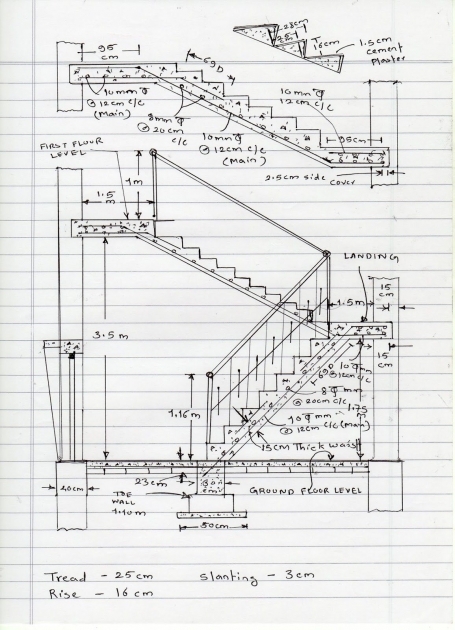 28cm
25
cm
16cm
1.5cm
cement
plaster
95
cm
69D
10mm ϕ
@ 12cm c/c
(Main)
8mm ϕ
@ 20cm
c/c
10mm ϕ
@ 12cm c/c
(main)
10mm ϕ
12cm c/c
95cm
2.5cm side
cover
FIRST FLOOR
LEVEL
1.5
m
1m
LANDING
1.5m
15
cm
15
cm
3.5m
10ϕmm
@12cm c/c
8ϕ mm
@ 20cm c/c
1.75
m
10ϕ mm
@ 12cm c/c (main)
1.16m
15cm Thick waist
23cm
30
cm
40cm
TOE
WALL
1.10m
GROUND FLOOR LEVEL
50cm
Tread - 25cm
slanting - 3cm
Rise - 16cm